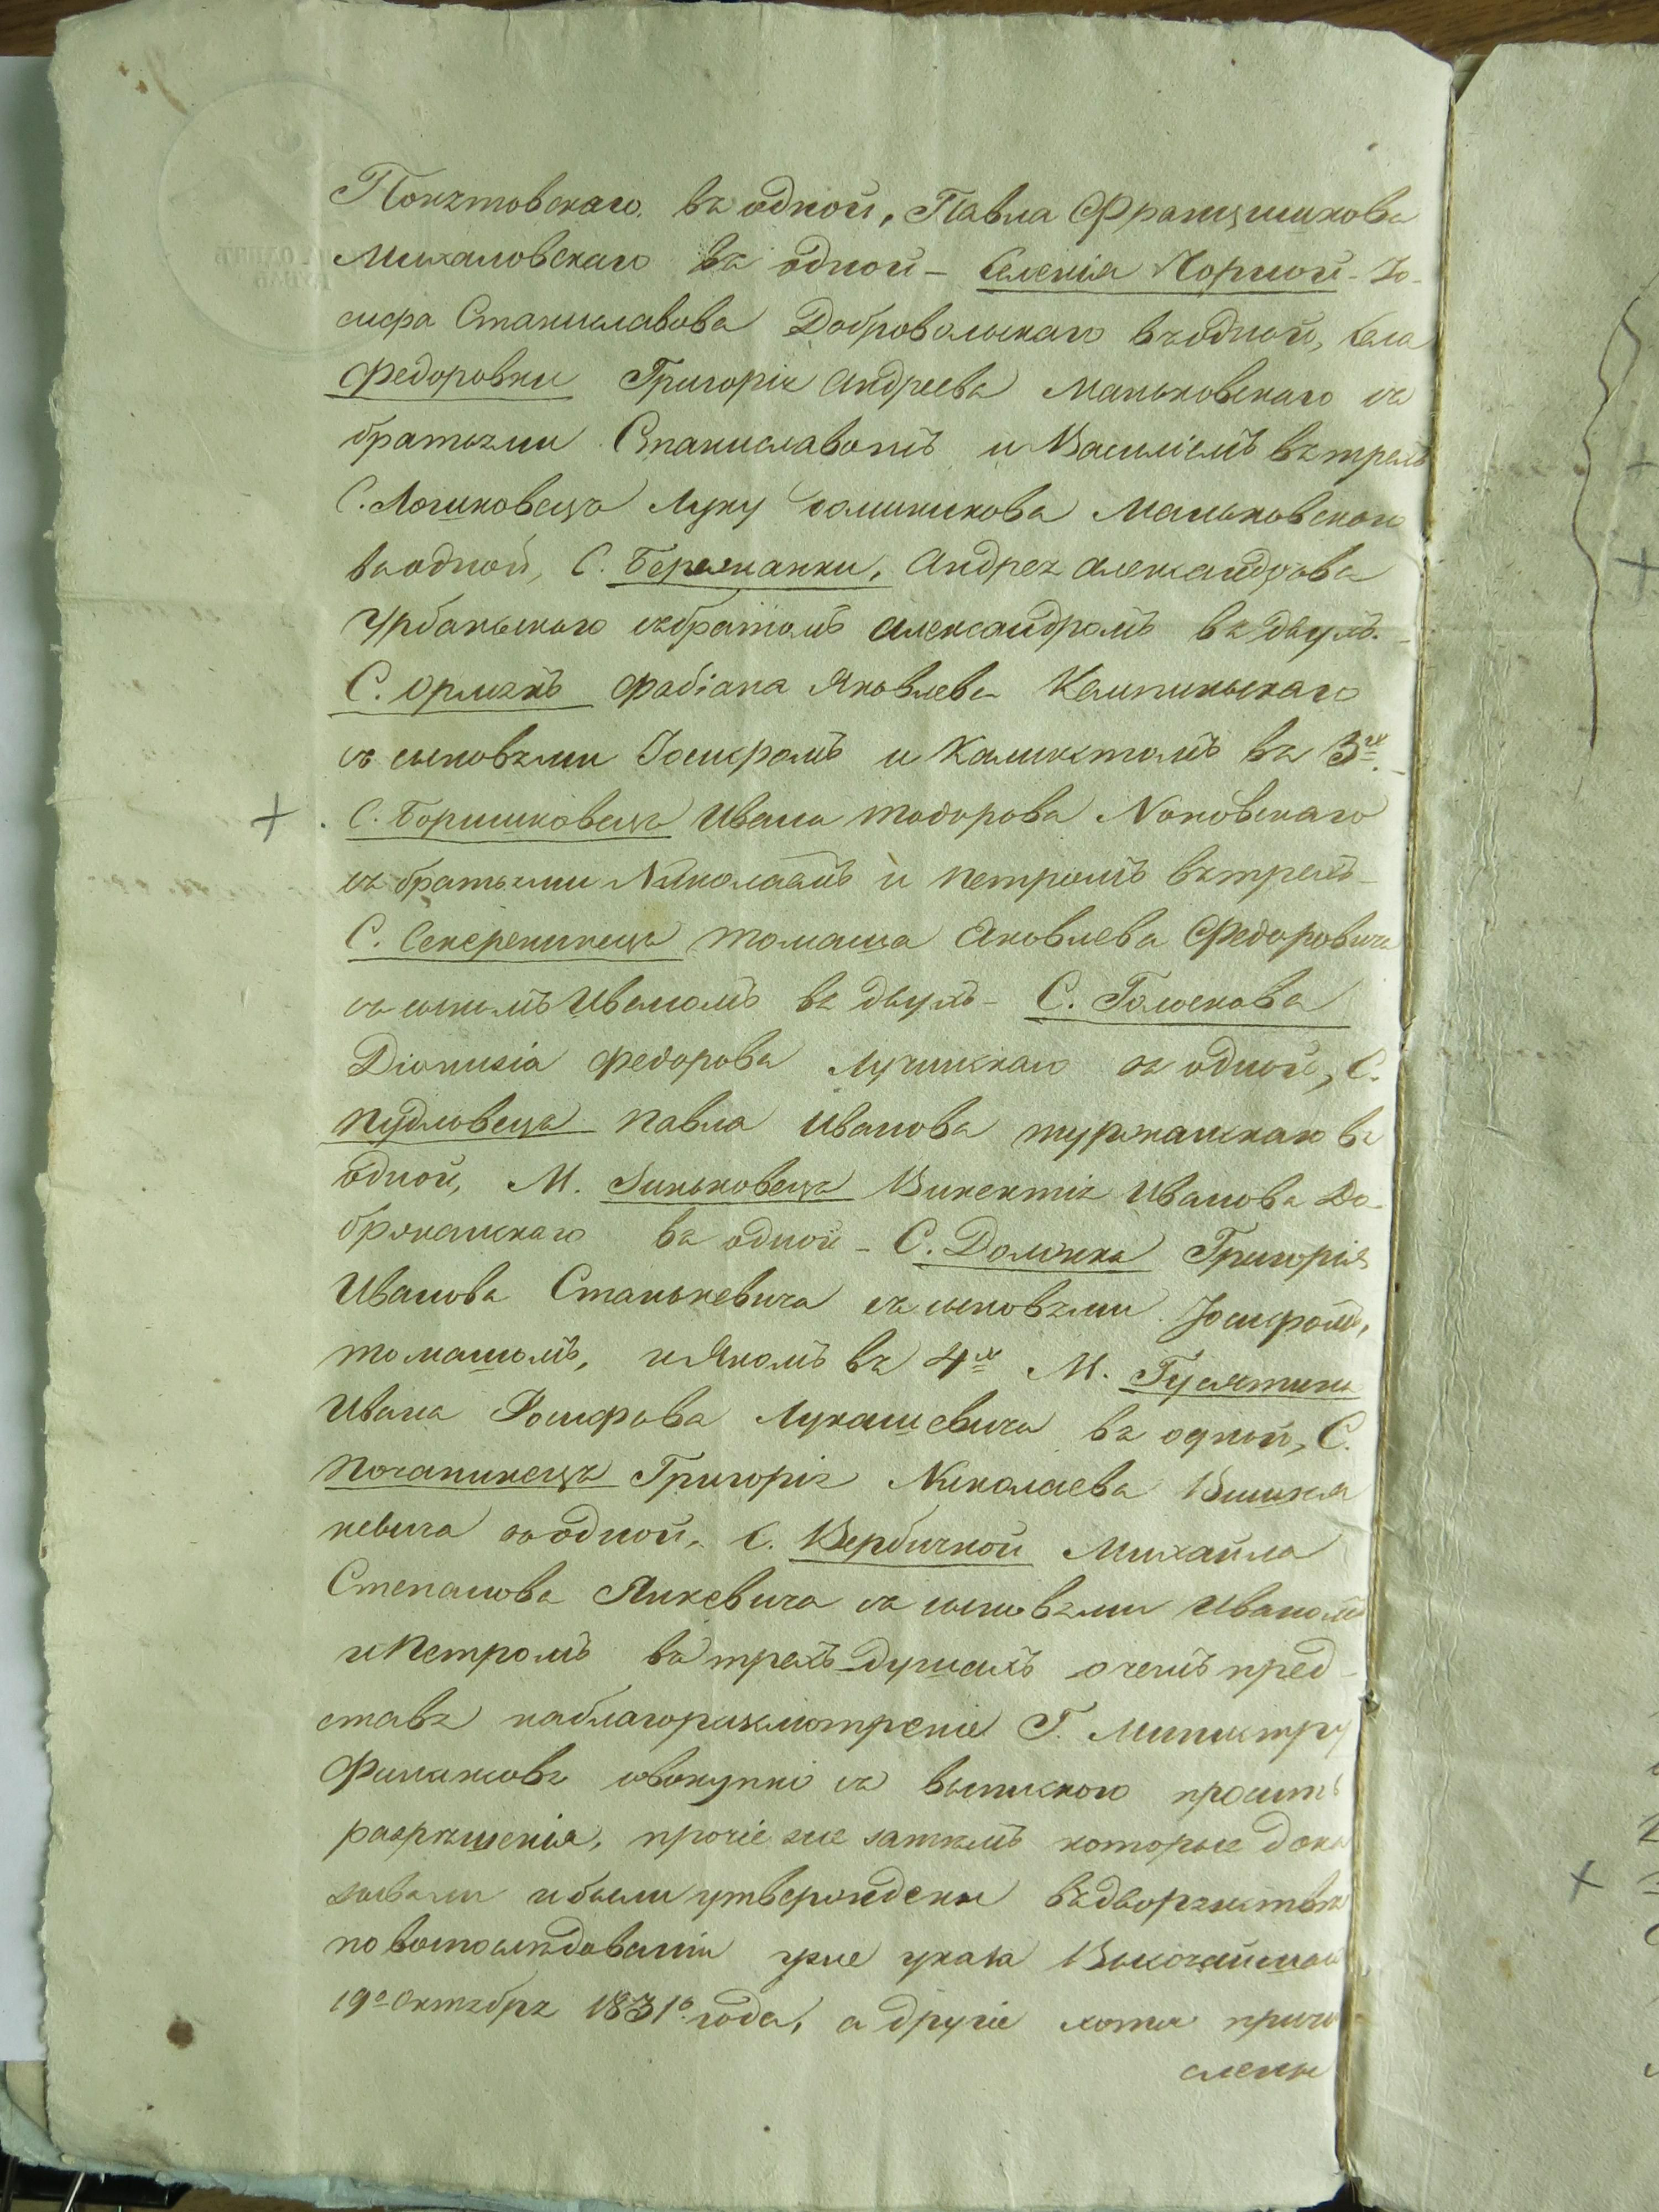 въ одной, Павла Францишкова
Михаловскаго въ одной – Селенія Чорной – Іо-
сифа Станиславова Добровольскаго въ одной, села
Федоровки Григорія Андреева Маньковскаго съ
братьями Станиславомъ и Василіемъ въ трехъ
С. Лошковецъ Луку Доминикова Маньковскаго
въ одной, С. Бережанки, Андрея Александрова
Урбаньскаго съ братомъ Александромъ въ двухъ. –
С. Орлякъ Фабіана Яковлева Кемпиньскаго
съ сыновьями Іосифомъ и Каликстомъ въ 3хъ. –
С. Боришковецъ Ивана Тодорова
съ братьями Николаемъ и Петромъ въ трехъ –
С. Секереинецъ Томаша Яковлева Федоровича
съ сыномъ Иваномъ въ двухъ – С. Голоскова
Dіонизіа Федорова въ одной, С.
Пудловецъ Павла Иванова Туржанскаго въ
одной, М. Зиньковецъ Викентія Иванова До-
бржанскаго въ одной – С. Должка Григорія
Иванова Станькевича съ сыновьями Іосифомъ,
Томашомъ, и Яномъ въ 4хъ М. Гусятина
Ивана Іосифова Лукашевича въ одной, С.
Почапинецъ Григорія Николаева
кевича въ одной, С. Вербичной Михайла
Степанова Янкевича съ сыновьями Иваномъ
и Петромъ въ трехъ душахъ о чемъ пред-
ставя на благоразсмотреніе Г. Министру
Финансовъ совокупно съ выпискою просить
разрѣшенія, прочіе же затемъ которые дока
зывали и были утверждены въ дворянствѣ
по воспоследованіи уже указа Высочайшаго
19го Октября 1831го года, а другіе хотя причи-
слены